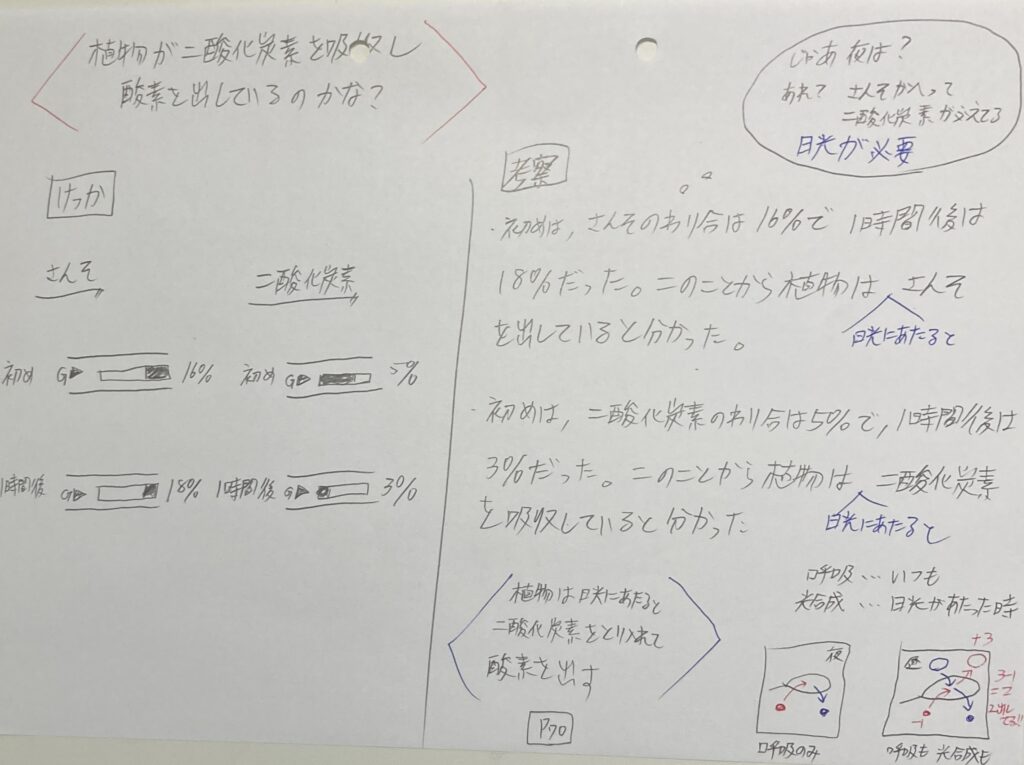 植物が二酸化炭素を吸収し
酸素を出しているのかな?
じゃあ夜は?
あれ? さんそがへって
二酸化炭素がふえてる
日光が必要
けっか
さんそ
二酸化炭素
初め G 16%
初め G 5%
1時間後 G 18%
1時間後 G 3%
考察
・初めは,さんそのわり合は16%で 1時間後は
18%だった。このことから植物は さんそ
日光にあたると
を出していると分かった。
・初めは,二酸化炭素のわり合は5%で,1時間後は
3%だった。このことから植物は 二酸化炭素
日光にあたると
を吸収していると分かった
植物は日光にあたると
二酸化炭素をとり入れて
酸素を出す
P70
呼吸…いつも
光合成…日光があたった時
夜
呼吸のみ
昼
+3
3-1
=2
2出し
てる!!
-1
呼吸も 光合成も